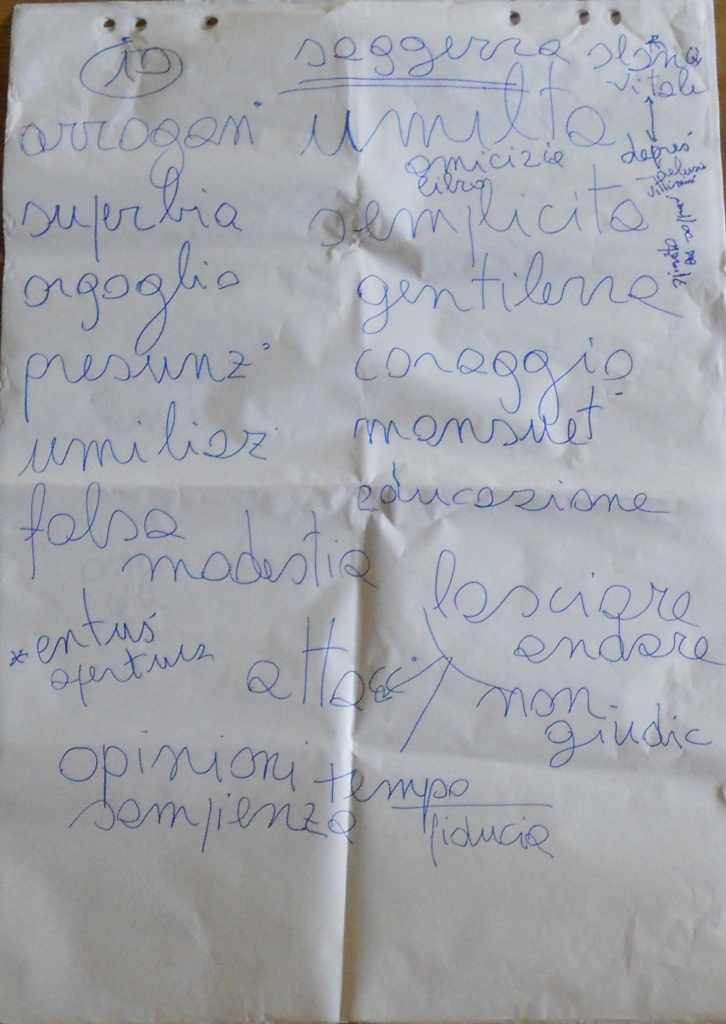 io saggezza slanc
vitale
arrogan umiltà
amicizia
libro
depres
superbia semplicità
orgoglio gentilezza
presunz coraggio
umiliaz mansuet
educazione
falsa
modestia
lasciare
andare
* entus
apertura
attacc
non
giudic
opinioni
tempo
fiducia